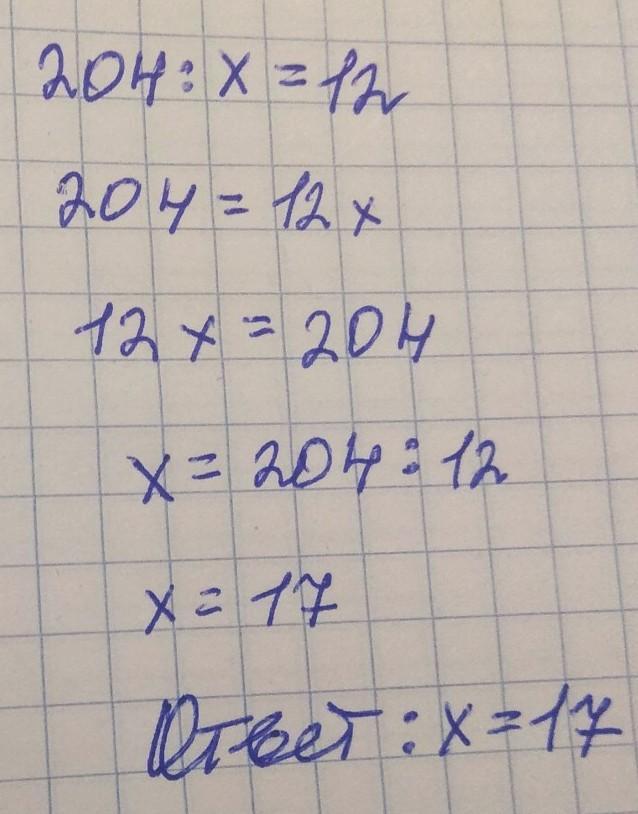 204 : x = 12
204 = 12x
12x = 204
x = 204 : 12
x = 17
Ответ : x = 17